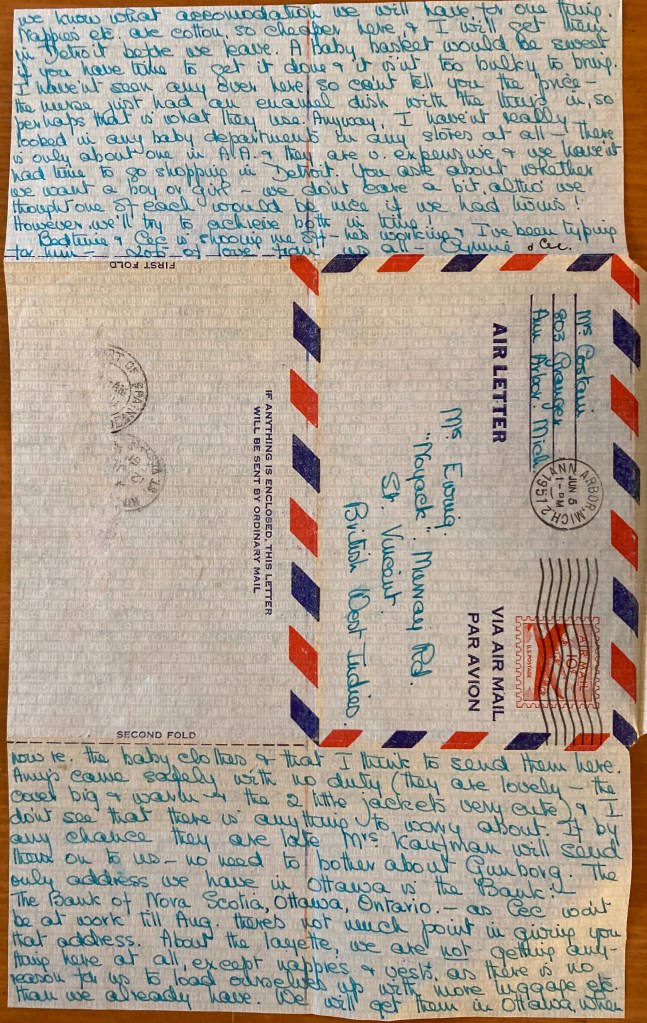 we know what accomodation we will have for one thing.
Nappies etc. are cotton, so cheaper here & I will get them
in Detroit before we leave. A baby basket would be sweet
if you have time to get it done & it isn't too bulky to bring.
I have'nt seen any over here so can't tell you the price -
the nurse just had an enamel dish with the things in, so
perhaps that is what they use. Anyway, I have'nt really
looked in any baby departments in any stores at all - there
is only about one in A.A. & they are v. expensive & we have'nt
had time to go shopping in Detroit. You ask about whether
we want a boy or girl - we don't care a bit, altho' we
thought one of each would be nice if we had twins!
However, we'll try to achieve both in time!
Bedtime & Cec is shooing me off - has working & I've been typing
for him - Lots of love from us all - & Cec.
FIRST FOLD
IF ANYTHING IS ENCLOSED, THIS LETTER
WILL BE SENT BY ORDINARY MAIL
SECOND FOLD
Mrs Costain
803 Granger
Ann Arbor. Mich
AIR LETTER
VIA AIR MAIL
PAR AVION
ANN ARBOR, MICH. 2
JUN 5
1 - PM
1951
AIR MAIL
10¢
U.S. POSTAGE
Mrs. Ewing.
"Noyack". Murray Rd.
St. Vincent
British West Indies.
now re. the baby clothes & that I think to send them here.
Amy's came safely with no duty (they are lovely - the
cover big & warm & the 2 little jackets very cute) & I
don't see that there is anything to worry about. If by
any chance they are late Mrs Kaufman will send
them on to us - no need to bother about Gunborg. The
only address we have in Ottawa is the Bank:-
The Bank of Nova Scotia, Ottawa, Ontario. - as Cec won't
be at work till Aug. there's not much point in giving you
that address. About the layette, we are not getting any-
thing here at all, except nappies & vests, as there is no
reason for us to load ourselves up with more luggage etc.
than we already have. We will get them in Ottawa, when